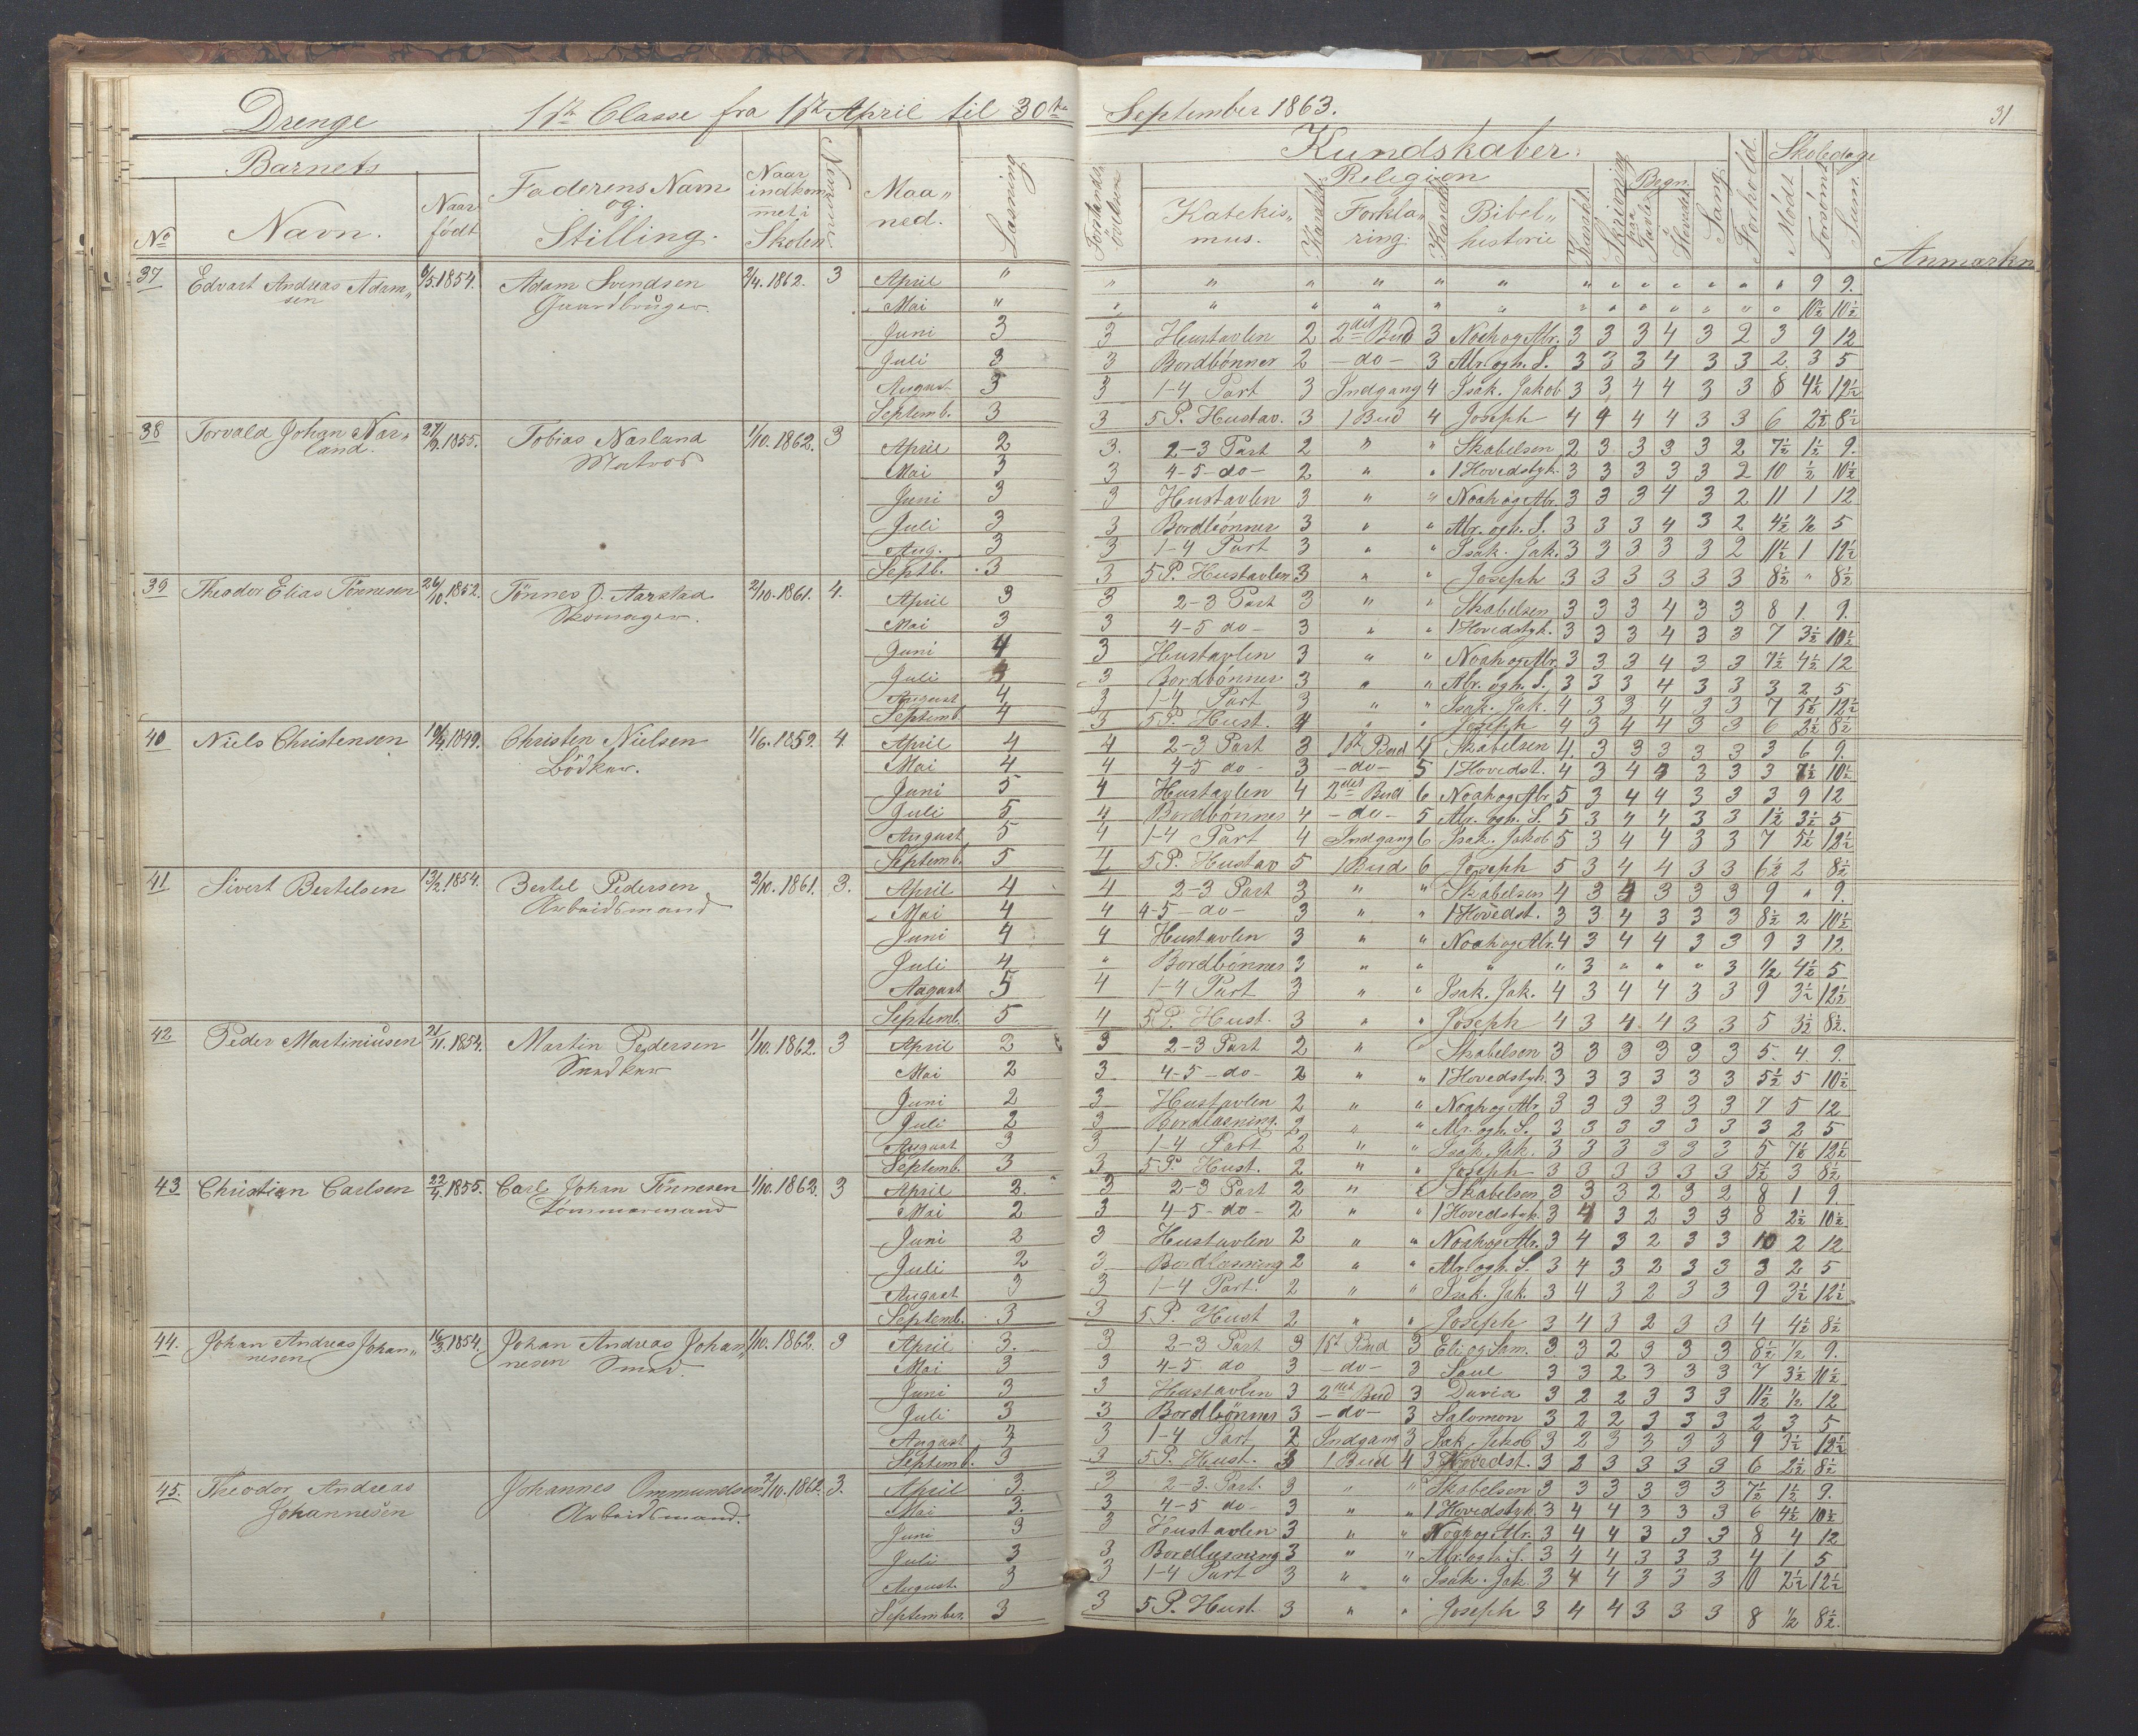 Drenge 1ste Classe fra 1ste April til 30te September 1863. 31
Barnets Kundskaber. Skoledage
No Navn. Naar født Faderens Navn og Stilling. Naar indkommet i Skolen Maaned. Læsning Religion Katekismus. Karakt. Forklaring. Karakt. Bibelhistorie Karakt. Skrivning Regn. paa Tavle Hovedet Sang. Forhold. Mødt. Forsømt. Sum. Anmærkn
37 Edvart Andreas Adam„sen 6/5.1854. Adam Svendsen Gaardbruger. 2/4.1862. 3
April " " " " " " " " " " " " " " " 9 9.
Mai " " " " " " " " " " " " " " " 10½ 10½
Juni 3 3 Hustavlen 2 2det Bud 3 Noah og Abr. 3 3 3 4 3 2 3 9 12
Juli 3 3 Bordbønner 2 -do- 3 Abr. og h. S. 3 3 3 4 3 3 2 3 5
August 3 3 1-4 Part 3 Indgang 4 Isak. Jakob 3 3 4 4 3 3 8 4½ 12½
Septemb. 3 3 5 P. Hustav. 3 1 Bud 4 Joseph 4 4 4 4 3 3 6 2½ 8½
38 Torvald Johan Nær„land. 27/9.1855. Tobias Nærland Matros 1/10.1862. 3
April 2 3. 2-3 Part 2 " " Skabelsen 2 3 3 3 3 2 7½ 1½ 9.
Mai 3 3 4-5-do- 2 " " 1 Hovedstyk. 3 3 3 3 3 2 10 ½ 10½
Juni 3 3 Hustavlen 3 " " Noah og Abr. 3 3 3 4 3 2 11 1 12
Juli 3 3 Bordbønner 3 " " Abr. og h. S. 3 3 3 4 3 2 4½ ½ 5
Aug. 3 3 1-4 Part 3 " " Isak. Jak. 3 3 3 3 3 2 11½ 1 12½
Septb. 3 3 5 P. Hustavlen 3 " " Joseph 3 3 3 3 3 3 8½ " 8½
39 Theodor Elias Tönnesen 26/10.1852. Tönnes O. Aarstad Skomager. 2/10.1861. 4.
April 3 3 2-3 Part 3 " " Skabelsen 3 3 3 4 3 3 8 1. 9.
Mai 3 3 4-5 do- 3 " " 1 Hovedstyk. 3 3 3 4 3 3 7 3½ 10½
Juni 4 3 Hustavlen 3 " " Noah og Abr. 3 3 3 4 3 3 7½ 4½ 12
Juli 3 Bordbønner 3 " " Abr. og h. S. 3 3 3 4 3 3 3 2 5
August 4 3 1-4 Part 3 " " Isak. Jak. 4 3 3 4 3 3 7 5½ 12½
Septemb. 4 3 5 P. Hust. 4 " " Joseph 4 3 4 4 3 3 6 2½ 8½
40 Niels Christensen 1849. Christen Nielsen Bödker. 1/6.1859. 4.
April 4 4 2-3 Part 3 1ste Bud 4 Skabelsen 4. 3 3 3 3 3 3 6 9.
Mai 4 4 4-5 do- 3 -do- 5 1 Hovedst. 4 3 4 3 3 3 3 7½ 10½
Juni 5 4 Hustavlen 4 2det Bud 6 Noah og Abr 5 3 4 4 3 3 3 9 12
Juli 5 4 Bordbønner 4 -do- 5 Abr. og h. S. 5 3 4 4 3 3 1½ 3½ 5
August 5 4 1-4 Part 4 Indgang 6 Isak. Jakob 5 3 4 4 3 3 7 5½ 12½
Septemb. 5 4 5 P. Hustav 5 1 Bud 6 Joseph 5 3 4 4 3 3 6½ 2 8½
41 Sivert Bertelsen 13/2.1854. Bertel Pedersen Arbeidsmand 2/10.1861. 3.
April 4 4 2-3 Part 3 " " Skabelsen 4 3 4 3 3 3 9 " 9.
Mai 4 4 4-5-do- 3 " " 1 Hovedst. 3 3 4 3 3 3 8½ 2 10½
Juni 4 4 Hustavlen 3 " " Noah og Abr. 4 3 4 4 3 3 9 3 12.
Juli 4 " Bordbønner 3 " " " " 3 " " " 3 ½ 4½ 5
August 5 4 1-4 Part 3 " " Isak. Jak. 4 3 4 4 3 3 9 3½ 12½
Septemb. 5 4 5 P. Hust. 3 " " Joseph 4 3 4 4 3 3 5 3½ 8½.
42 Peder Martiniusen 21/11.1854. Martin Pedersen Snedker 1/10.1862. 3
April 2 3 2-3 Part 2 " " Skabelsen 3 3 3 3 3 3 5. 4. 9.
Mai 2 3 4-5-do- 2 " " 1 Hovedstyk. 3 3 3 3 3 3 5½ 5 10½
Juni 2 3 Hustavlen 2 " " Noah og Abr 3 3 3 3 3 3 7 5 12
Juli 2 3 Bordlæsning. 2 " " Abr. og h. S. 3 3 3 3 3 3 3 2 5
August 3 3 1-4 Part 2 " " Isak. Jak. 3 3 3 3 3 3 5 7½ 12½
Septemb. 3 3 5 P. Hust. 2 " " Joseph 3 3 3 3 3 3 5½ 3 8½
43 Christian Carlsen 22/4.1855. Carl Johan Tönnesen Tömmermand 1/10.1862. 3
April 2. 3 2-3 Part 2 " " Skabelsen 3 3 3 2 3 2 8 1 9.
Mai 2 3 4-5-do- 2 " " 1 Hovedstyk. 3 4 3 2 3 3 8 2½ 10½
Juni 2 3 Hustavlen 2 " " Noah og Abr. 3 4 3 2 3 3 10 2 12
Juli 2 3 Bordlæsning 2 " " Abr. og h. S. 3 4 3 2 3 3 3 2 5
August 3 3 1-4 Part. 2 " " Isak. Jak. 3 4 3 2 3 3 9 3½ 12½
Septemb. 3 3 5 P. Hust 2 " " Joseph 3 4 3 2 3 3 4 4½ 8½
44. Johan Andreas Johan„nesen 16/3.1854. Johan Andreas Johan„nesen Smed. 1/10.1862. 3
April 3. 3 2-3 Part 3 1ste Bud 3 Eli og Sam. 3 3 2 3 3 3 8½ ½ 9.
Mai 3 3 4-5 do 3 -do- 3 Saul 3 3 2 3 3 3 7 3½ 10½
Juni 3 3 Hustavlen 3 2det Bud 3 David 3 2 2 3 3 3 11½ ½ 12
Juli 3 3 Bordbønner 3 -do- 3 Salomon 3 2 2 3 3 3 2 3 5
August 3 3 1-4 Part 2 Indgang 3 Isak. Jakob 3 2 3 3 3 3 9 3½ 12½
Septemb. 3 3 5 P. Hust. 3 1 Bud 4 3 Hovedst. 3 2 3 3 3 3 6 2½ 8½
45. Theodor Andreas Johannesen Johannes Ommundsen Arbeidsmand. 2/10.1862. 3.
April 3. 3 2-3. Part. 3 " " Skabelsen 3 3 3 3 3 3 7½ 1½ 9.
Mai 3. 3 4-5 do- 3 " " 1 Hovedstyk. 3 4 4 3 3 3 6 4½ 10½
Juni 3 3 Hustavlen 3 " " Noah og Abr. 3 4 4 3 3 3 8 4 12
Juli 3 3 Bordlæsning 3 " " Abr. og h. S. 3 4 4 3 3 3 4 1 5
August. 3 3 1-4 Part 3 " " Isak. Jak. 3 4 4 3 3 3 10 2½ 12½
September. 3 3 5 P. Hust. 3 " " Joseph 3 4 4 3 3 3 8 ½ 8½.